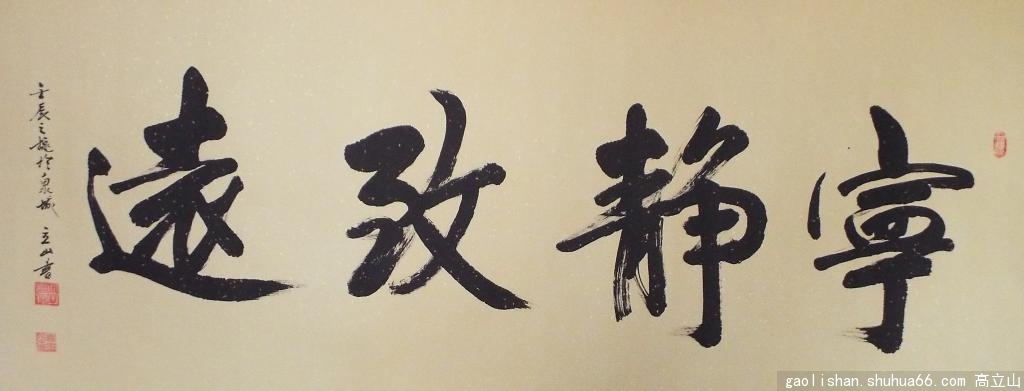 寧静致遠
壬辰之龍於泉城 立山書
gaolishan.shuhua66.com 高立山